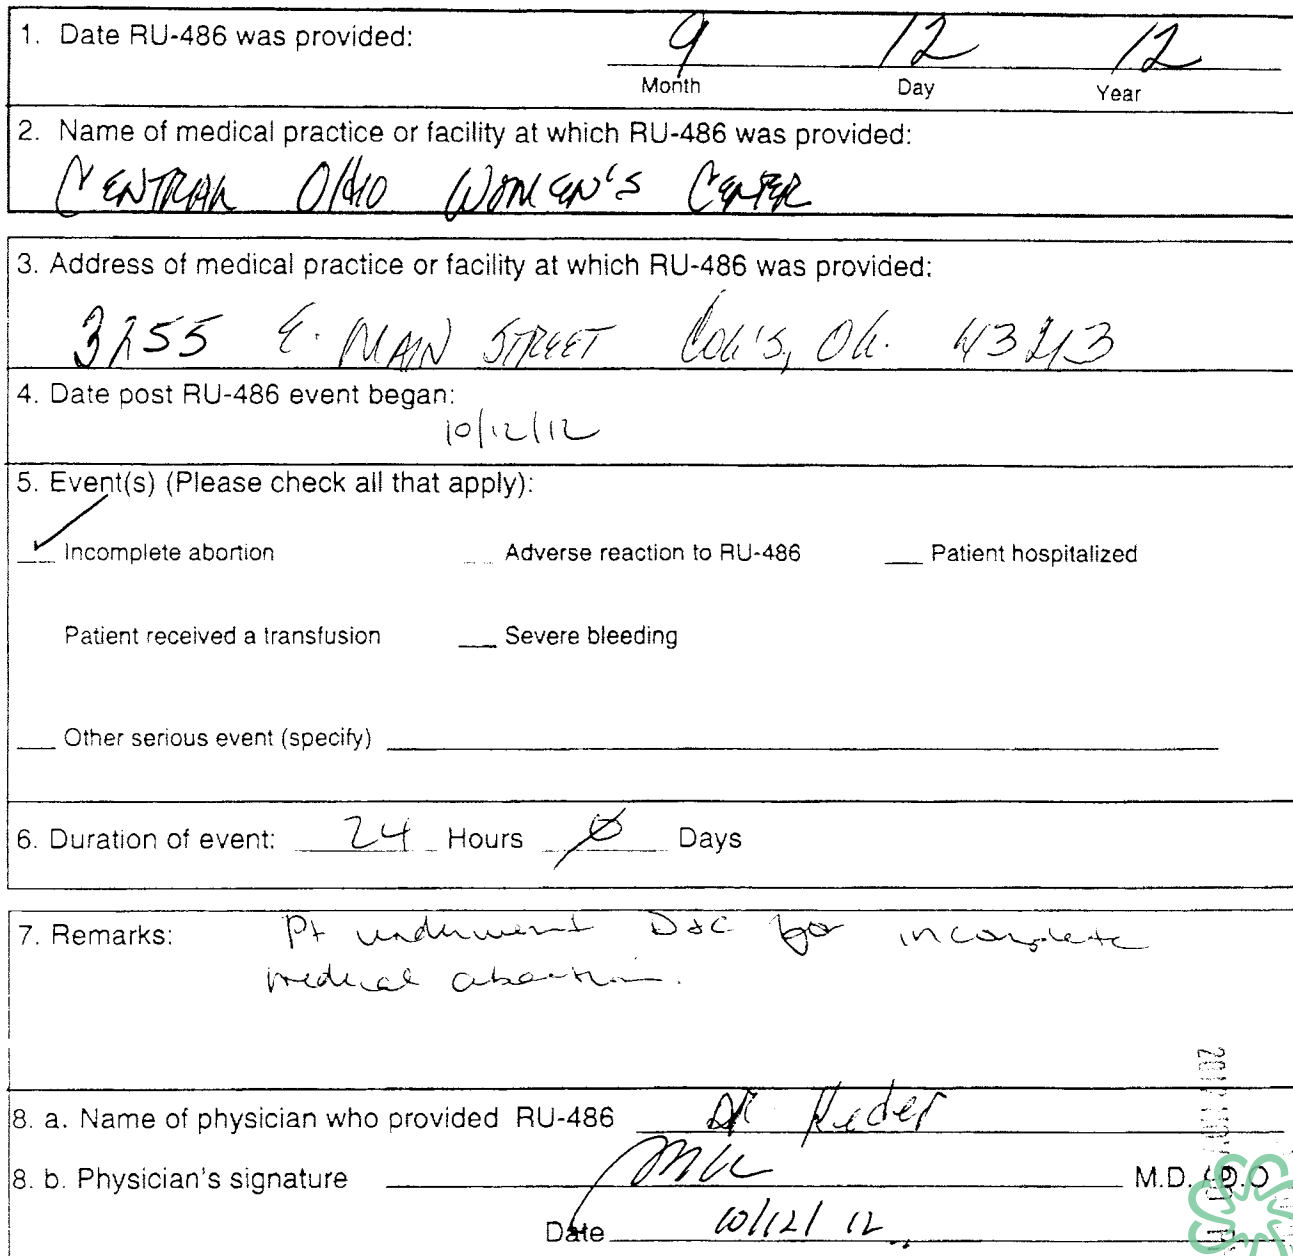 1. Date RU-486 was provided: 9 12 12
Month Day Year
2. Name of medical practice or facility at which RU-486 was provided:
CENTRAL OHIO WOMEN'S CENTER
3. Address of medical practice or facility at which RU-486 was provided:
3255 E. MAIN STREET COL'S, OH. 43213
4. Date post RU-486 event began:
10/12/12
5. Event(s) (Please check all that apply):
Incomplete abortion Adverse reaction to RU-486 Patient hospitalized
Patient received a transfusion Severe bleeding
Other serious event (specify)
6. Duration of event: 24 Hours 0 Days
7. Remarks: Pt underwent D&C for incomplete
medical abortion.
8. a. Name of physician who provided RU-486 Dr
8. b. Physician's signature M.D. D.O
Date 10/12/12